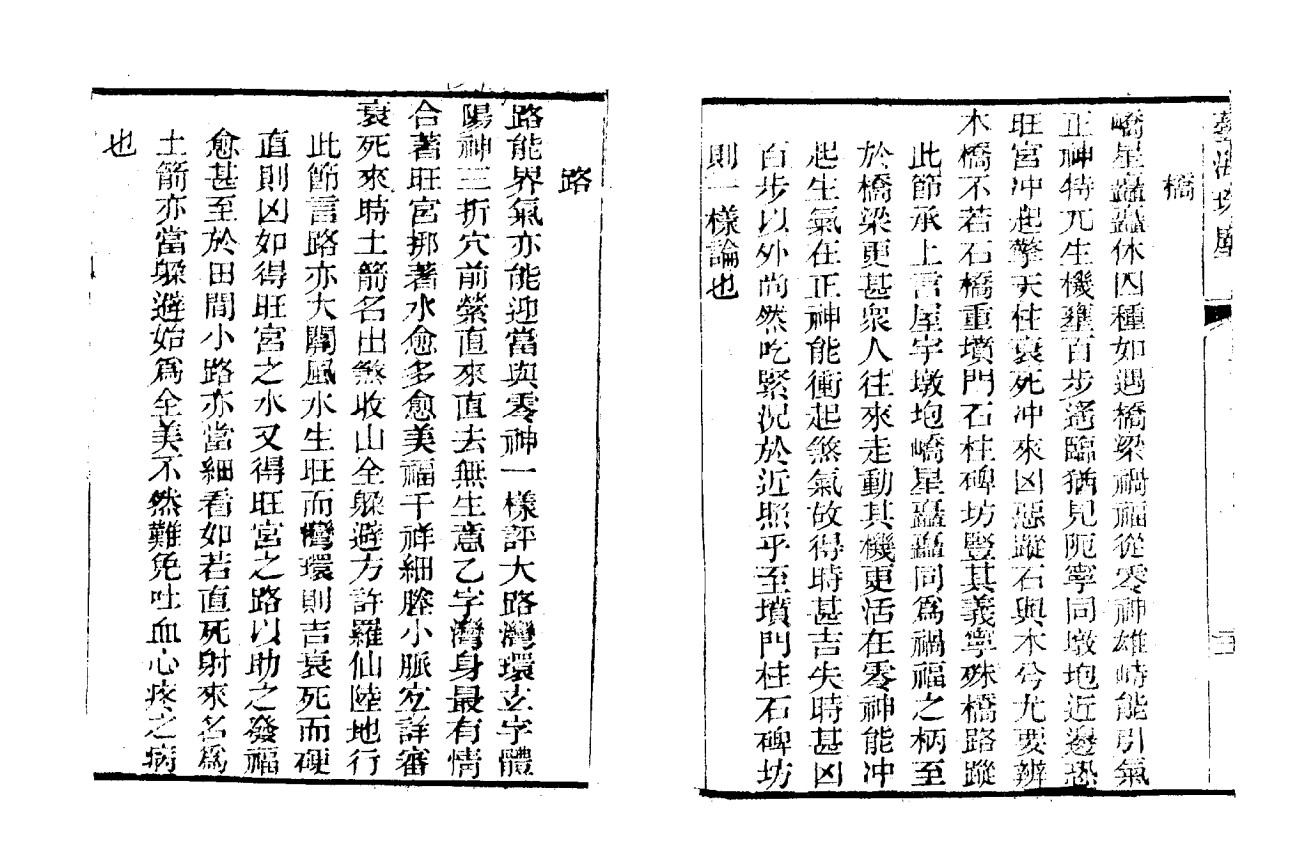 橋
嶠星矗矗休囚種如遇橋梁禍福從零神雄峙能引氣
正神特兀生機壅百步遙臨猶見阨寧同墩坳近邊恐
旺宮冲起擎天柱衰死冲來凶惡蹤石與木兮尤要辨
木橋不若石橋重墳門石柱碑坊豎其義寧殊橋路蹤
此節承上言屋宇墩坳嶠星矗矗同爲禍福之柄至
於橋梁更甚衆人往來走動其機更活在零神能冲
起生氣在正神能衝起煞氣故得時甚吉失時甚凶
百步以外尚然吃緊況於近照乎至墳門柱石碑坊
則一樣論也
路
路能界氣亦能迎當與零神一樣評大路灣環玄字體
陽神三折穴前縈直來直去無生意乙字灣身最有情
合著旺宮挪著水愈多愈美福千祥細膡小脈宏詳審
衰死來時土箭名出煞收山全躲避方許羅仙陸地行
此節言路亦大關風水生旺而灣環則吉衰死而硬
直則凶如得旺宮之水又得旺宮之路以助之發福
愈甚至於田間小路亦當細看如若直死射來名爲
土箭亦當躲避始爲全美不然難免吐血心疼之病
也